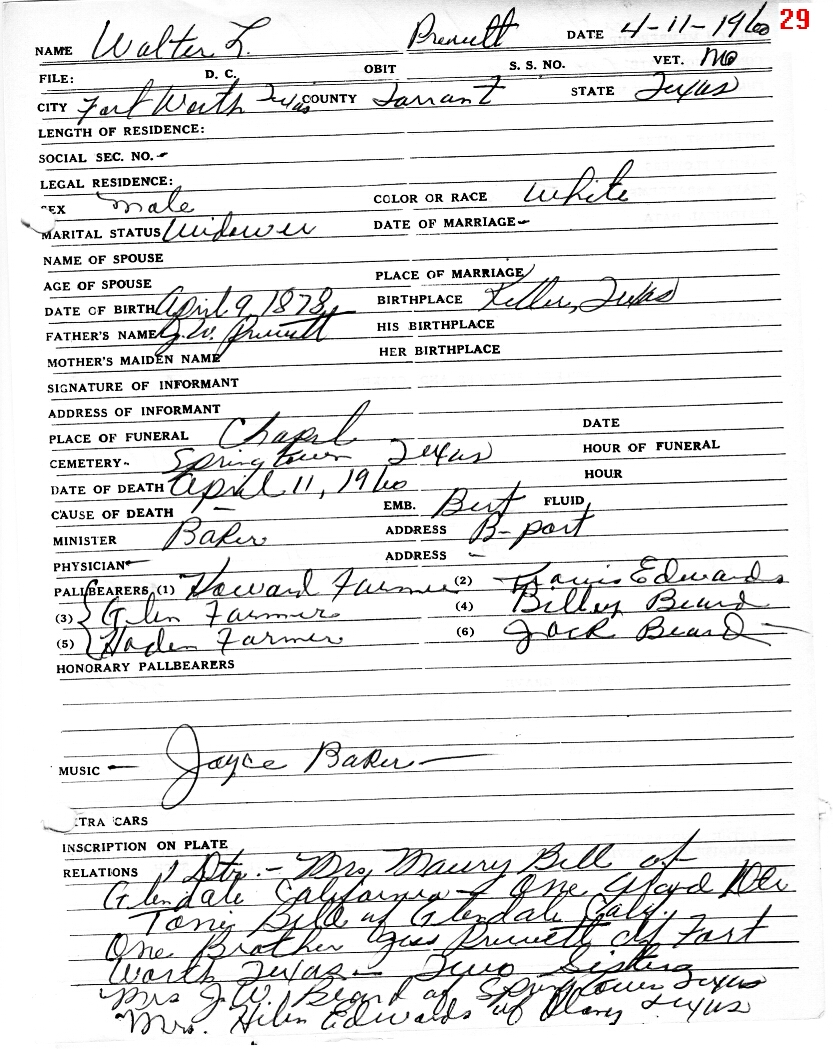 29
NAME Walter L. Prewitt DATE 4-11-1960
FILE: D. C. OBIT S. S. NO. VET. No
CITY Fort Worth Texas COUNTY Tarrant STATE Texas
LENGTH OF RESIDENCE:
SOCIAL SEC. NO.-
LEGAL RESIDENCE:
SEX Male COLOR OR RACE White
MARITAL STATUS Widower DATE OF MARRIAGE-
NAME OF SPOUSE
AGE OF SPOUSE PLACE OF MARRIAGE
DATE OF BIRTH April 9, 1878 BIRTHPLACE Keller, Texas
FATHER'S NAME J.W. Prewitt HIS BIRTHPLACE
MOTHER'S MAIDEN NAME HER BIRTHPLACE
SIGNATURE OF INFORMANT
ADDRESS OF INFORMANT
PLACE OF FUNERAL Chapel DATE
CEMETERY- Springtown Texas HOUR OF FUNERAL
DATE OF DEATH April 11, 1960 HOUR
CAUSE OF DEATH - EMB. Bert FLUID
MINISTER Baker ADDRESS B-port
PHYSICIAN- ADDRESS -
PALLBEARERS (1) Howard Farmer (2) Travis Edwards
(3) Glen Farmer (4) Billy Beard
(5) Haden Farmer (6) Jack Beard -
HONORARY PALLBEARERS
MUSIC - Joyce Baker -
EXTRA CARS
INSCRIPTION ON PLATE
RELATIONS 1 Dtr. - Mrs. Maury Bill of
Glendale California - One Grand Dtr
Toni Bill of Glendale Caly.
One Brother Prewitt of Fort
Worth Texas - Two Sisters
Mrs J.W. Beard of Springtown Texas
Mrs. Helen Edwards of Olney Texas